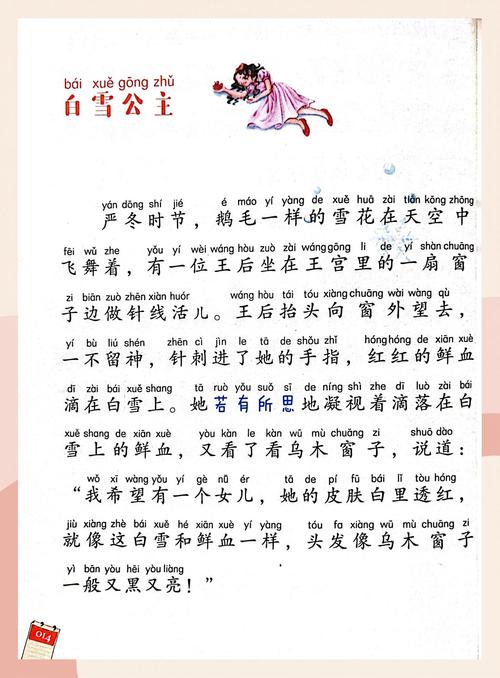 bái xuě gōng zhǔ
白雪公主
yán dōng shí jié é máo yí yàng de xuě huā zài tiān kōng zhōng
严冬时节，鹅毛一样的雪花在天空中
fēi wǔ zhe yǒu yí wèi wáng hòu zuò zài wáng gōng lǐ de yí shàn chuāng
飞舞着，有一位王后坐在王宫里的一扇窗
zi biān zuò zhēn xiàn huór wáng hòu tái tóu xiàng chuāng wài wàng qù
子边做针线活儿。王后抬头向窗外望去，
yí bù liú shén zhēn cì jìn le tā de shǒu zhǐ hóng hóng de xiān xuè
一不留神，针刺进了她的手指，红红的鲜血
dī zài bái xuě shang tā ruò yǒu suǒ sī de níng shì zhe dī luò zài bái
滴在白雪上。她若有所思地凝视着滴落在白
xuě shang de xiān xuè yòu kàn le kàn wū mù chuāng zi shuō dào
雪上的鲜血，又看了看乌木窗子，说道：
wǒ xī wàng yǒu yí gè nǚ ér tā de pí fū bái lǐ tòu hóng
“我希望有一个女儿，她的皮肤白里透红，
jiù xiàng zhè bái xuě hé xiān xuè yí yàng tóu fa xiàng wū mù chuāng zi
就像这白雪和鲜血一样，头发像乌木窗子
yì bān yòu hēi yòu liàng
一般又黑又亮！”
014